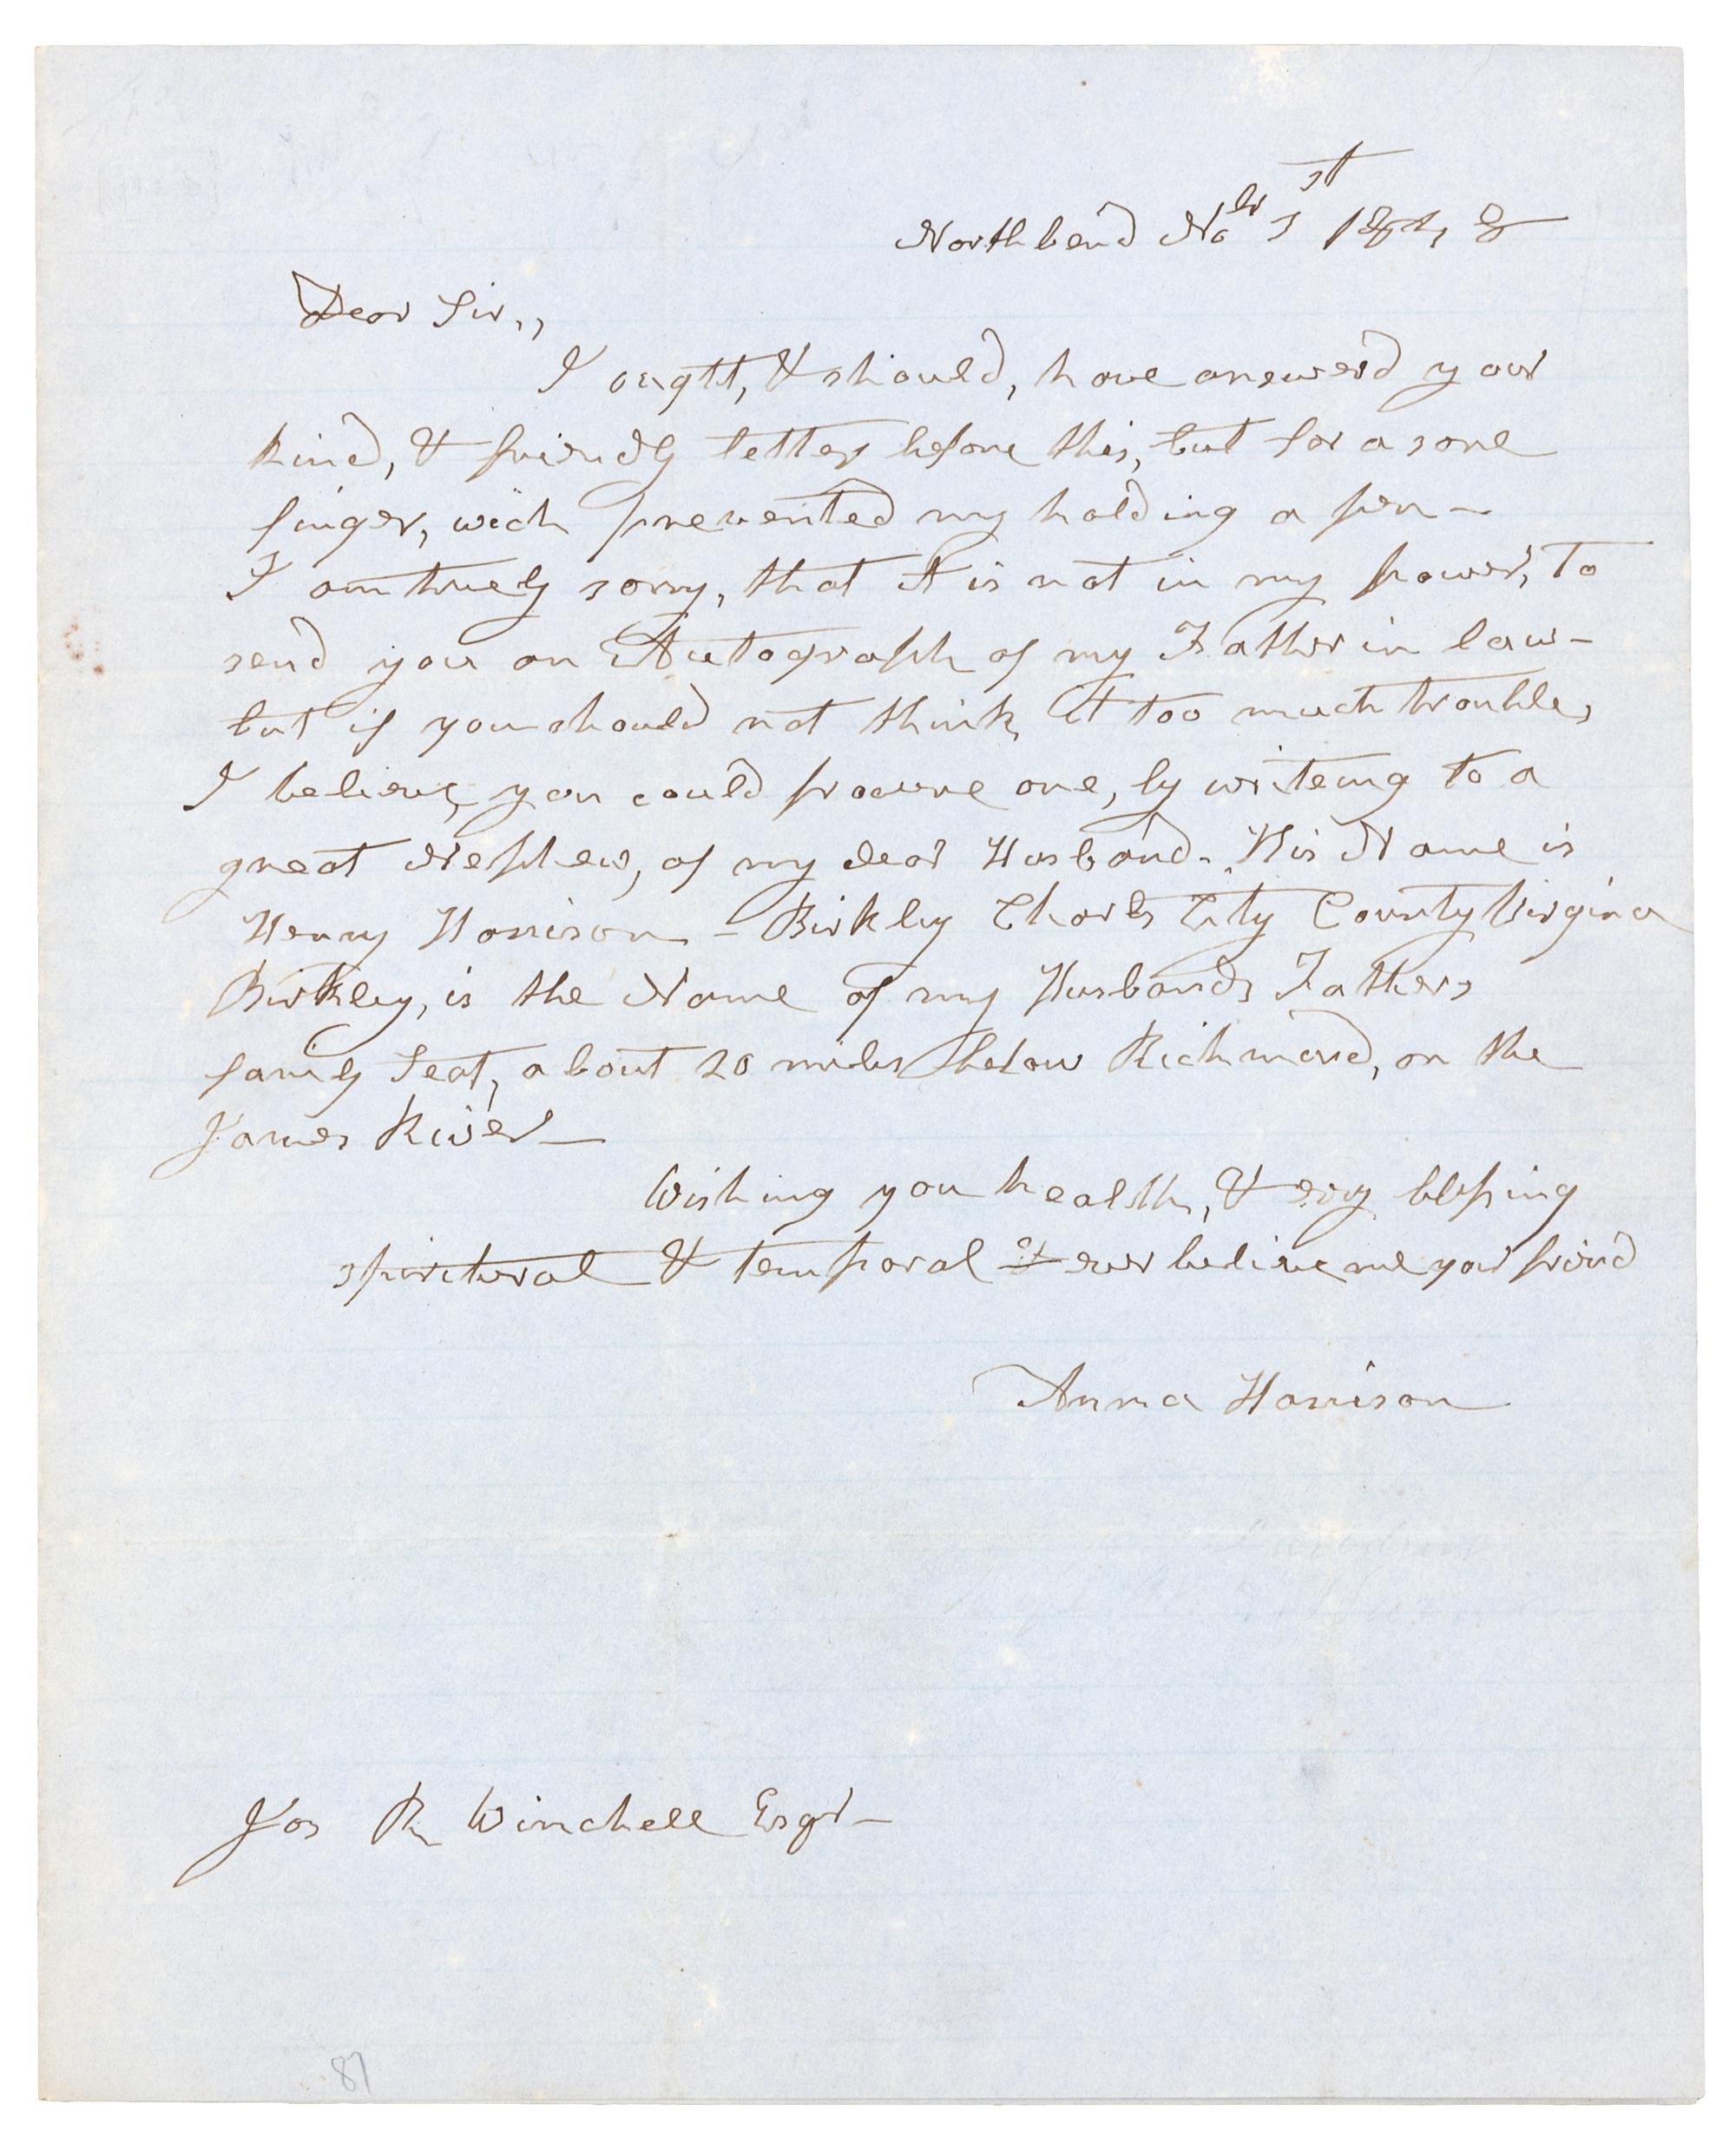 Northbend No br 1st 1848
Dear Sir,,
I ougtt, & should, have answerd your
kind, & friendly letter before this, but for a sore
finger, wich prevented my holding a pen —
I am truely sorry, that it is not in my power, To
send you an Autograph of my Father in law —
but if you should not think it too much trouble,
I believe you could procure one, by writeing to a
great Nephew, of my dear Husband - His Name is
Henry Harrison - Birkley Charles City County Virginia
Birkley, is the Name of my Husbands Fathers
family Seat, about 20 miles below Richmond, on the
James River —
Wishing you health, & evry blessing
spiritural & temporal & ever believe me your friend
Anna Harrison
Jos R Winchell Esqr —
87